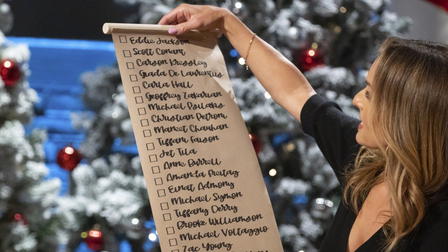 Eddie Jackson
Scott Conant
Carson Kressley
Giada De Laurentiis
Carla Hall
Geoffrey Zakarian
Michael
Christian Petroni
Maneet Chauhan
Tiffani Faison
Jet Tila
Anne Burrell
Amanda Freitag
Einat Admony
Michael Symon
Tiffany Derry
Brooke Williamson
Michael Voltaggio
Zac Young